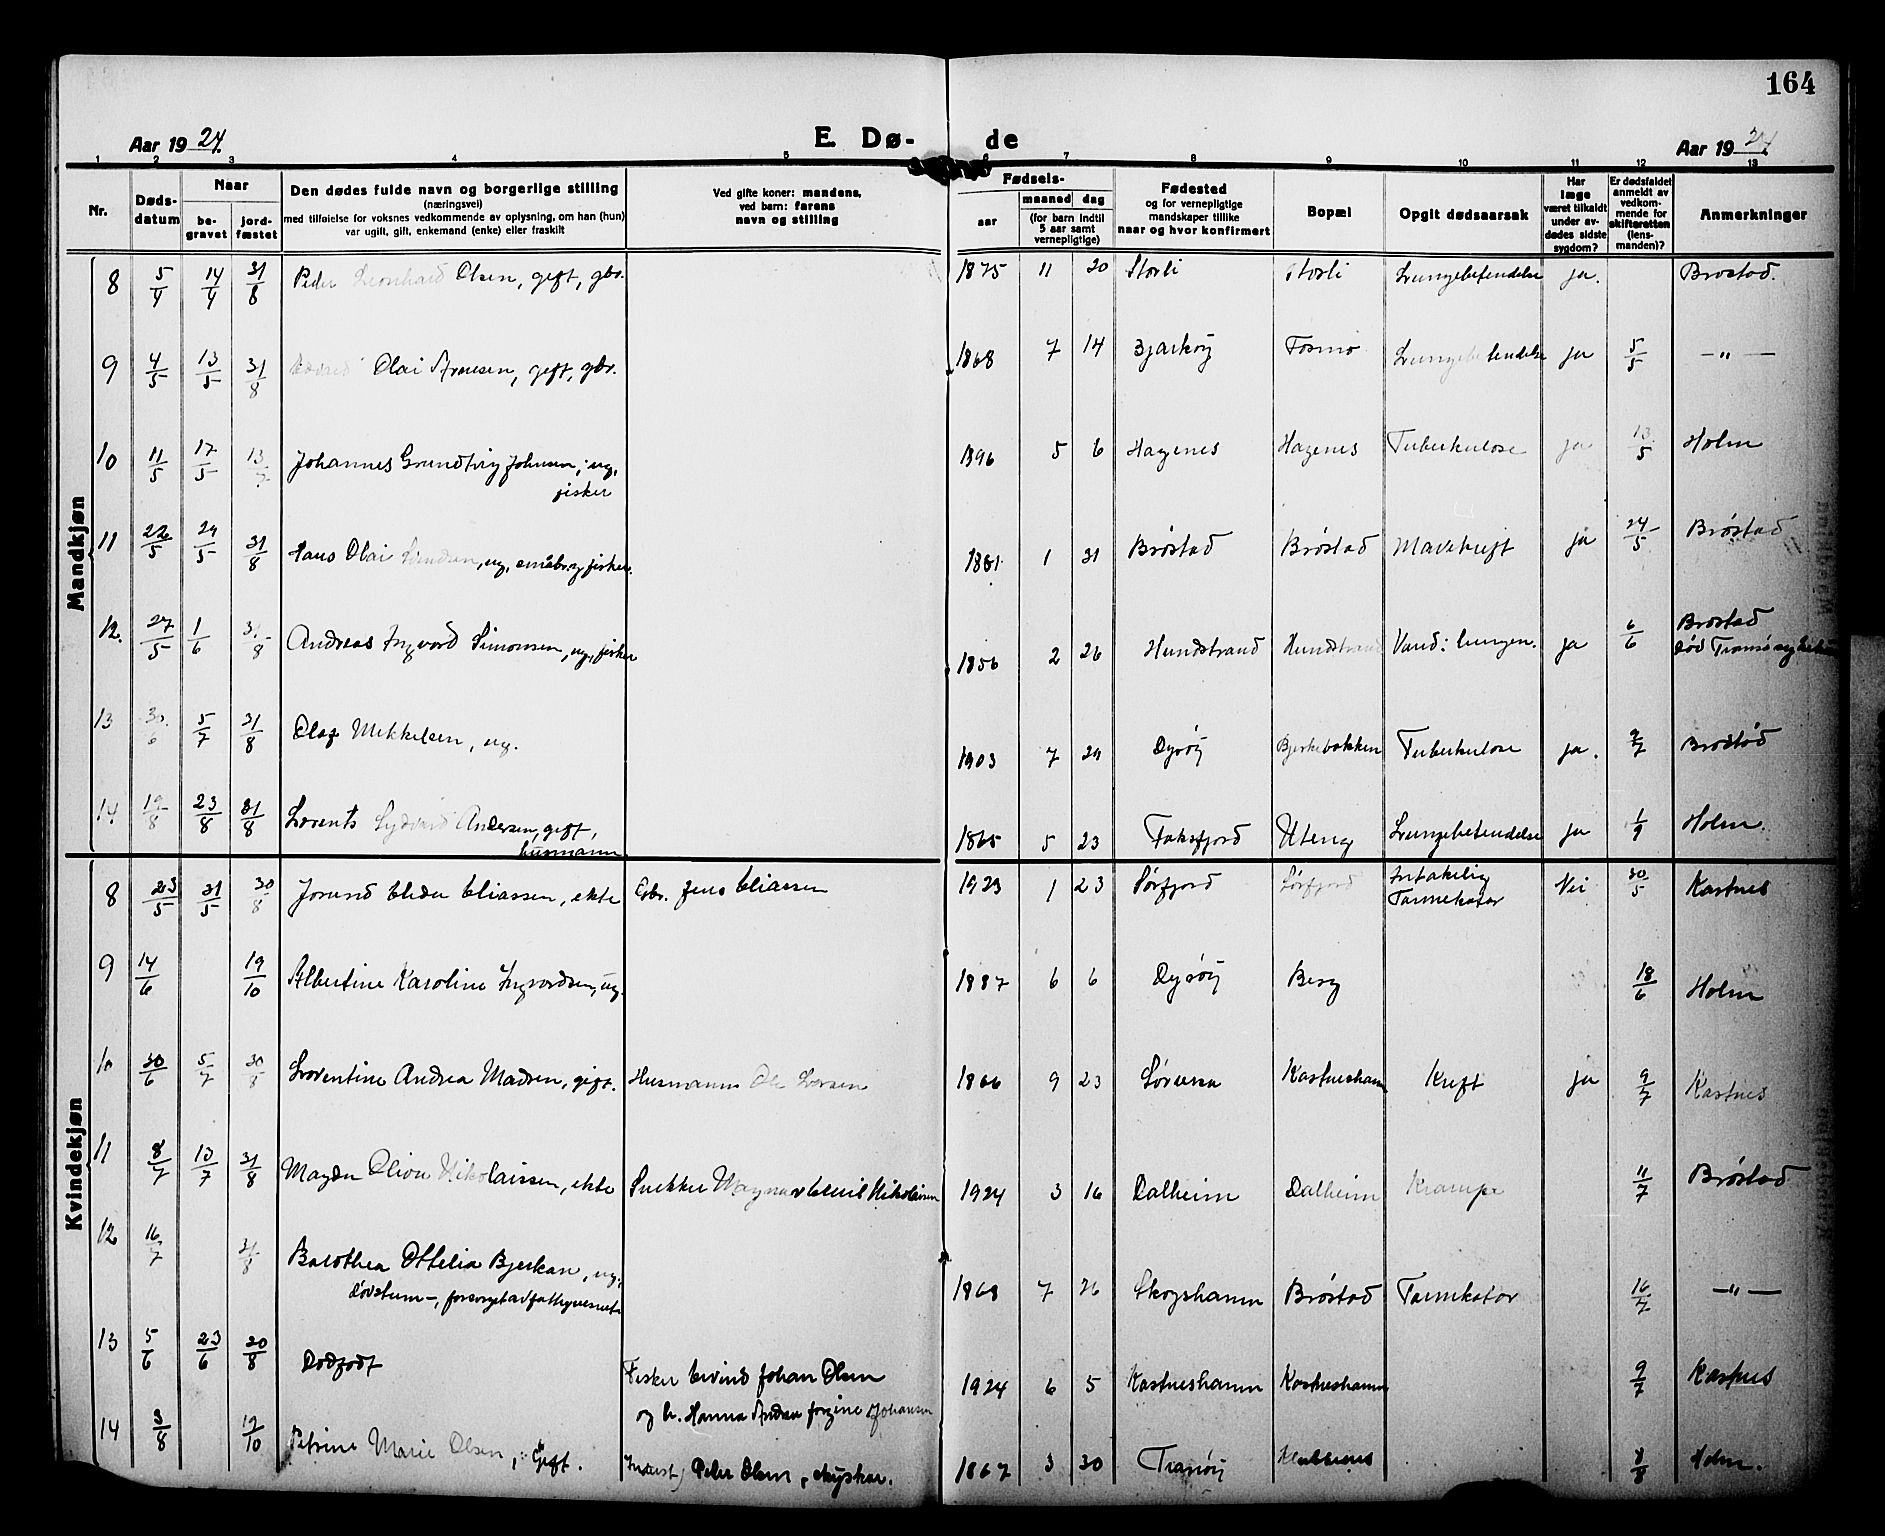 164
Aar 1924. E. Dø- de Aar 1924
1 2 3 4 5 6 7 8 9 10 11 12 13
Nr. Døds-datum Naar be-gravet jord-fæstet Den dødes fulde navn og borgerlige stilling (næringsvei) med tilføielse for voksnes vedkommende av oplysning, om han (hun) var ugift, gift, enkemand (enke) eller fraskilt Ved gifte koner: mandens, ved barn: farens navn og stilling Fødsels- aar maaned dag (for barn indtil 5 aar samt vernepligtige) Fødested og for vernepligtige mandskaper tillike naar og hvor konfirmert Bopæl Opgit dødsaarsak Har læge været tilkaldt under av-dødes sidste sygdom? Er dødsfaldet anmeldt av vedkom-mende for skifteretten (lens-manden)? Anmerkninger
Mandkjøn
8 5/4 14/4 31/8 Peder Leonhard Olsen, gift, gbr. 1875 11 20 Storli Storli Lungebetendelse ja. Brøstad.
9 4/5 13/5 31/8 Olai Arnesen, gift, gbr. 1868 7 14 Bjarkøy Fosmo Lungebetendelse ja 5/5 —"—
10 11/5 17/5 13/7 Johannes Grundtvig Johnsen, ug, fisker 1896 5 6 Hagenes Hagenes Tuberkulose ja 13/5 Holm
11 22/5 29/5 31/8 Hans Olai ug, småbr. og fisker. 1861 1 31 Brøstad Brøstad Mavekreft ja 24/5 Brøstad
12. 27/5 1/6 31/8 Andreas Ingvard Simonsen, ug, fisker 1856 2 26 Hundstrand Hundstrand Vand i lungen. ja 6/6 Brøstad
død Tromsø sykehus
13 30/6 5/7 31/8 Olaf Mikkelsen, ug. 1903 7 29 Dyrøy Bjerkebakken Tuberkulose ja. 9/7 Brøstad
14 19/8 23/8 31/8 Lorents Sydvard Andersen, gift, husmann 1865 5 23 Faksfjord Uteng Lungebetendelse ja 1/9 Holm.
Kvindekjøn
8 23/5 31/5 30/8 Jorund Elida Eliassen, ekte Gbr. Jens Eliassen 1923 1 23 Sørfjord Sørfjord Tarmkatar Nei 30/5 Kastnes
9 14/6 19/10 Albertine Karoline Ingvardsen, ug. 1887 6 6 Dyrøy Berg 18/6 Holm
10 30/6 5/7 30/8 Lorentine Andrea Madsen, gift. Husmann Ole Larsen 1866 9 23 Sørreisa Kastneshamn Kreft ja 9/7 Kastnes
11 8/7 13/7 31/8 Magda Oliou Nikolaissen, ekte Snekker Magnar Emil Nikolaisen 1924 3 16 Dalheim Dalheim Krampe 11/7 Brøstad
12 16/7 31/8 Barothea Ottelia Bjerkan, ug, døvstum -, forsørget av fattigvesenet 1868 7 26 Skogshamn Brøstad Tarmkatar 16/7 —"—
13 5/6 23/6 30/8 Dødfødt Fisker Eivind Johan Olsen
og h. Hanna Andrea Johansen 1924 6 5 Kastneshamn Kastneshamn 9/7 Kastnes
14 3/8 19/10 Petrine Marie Olsen, Gift. Peder Olsen, 1867 3 30 Tranøy Klubbenes 8/8 Holm.